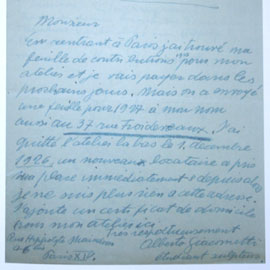 Monsieur
En rentrant à Paris j'ai trouvé ma
feuille de contributions pour mon
atelier et je vais payer dans les
prochains jours. Mais on a envoyé
une feuille pour 1927 à mon nom
aussi au 37 rue Froidevaux. J'ai
quitté l'atelier la bas le 1. decembre
1926, un nouveau locataire a pris
ma place immédiatement et depuis
je ne suis plus rien a cette adresse.
J'ajoute un certificat de domicile
pour mon atelier ici
Très respectueusement
Rue Hippolyte Maindron
46
Alberto Giacometti
Paris XIV.
étudiant sculpteur